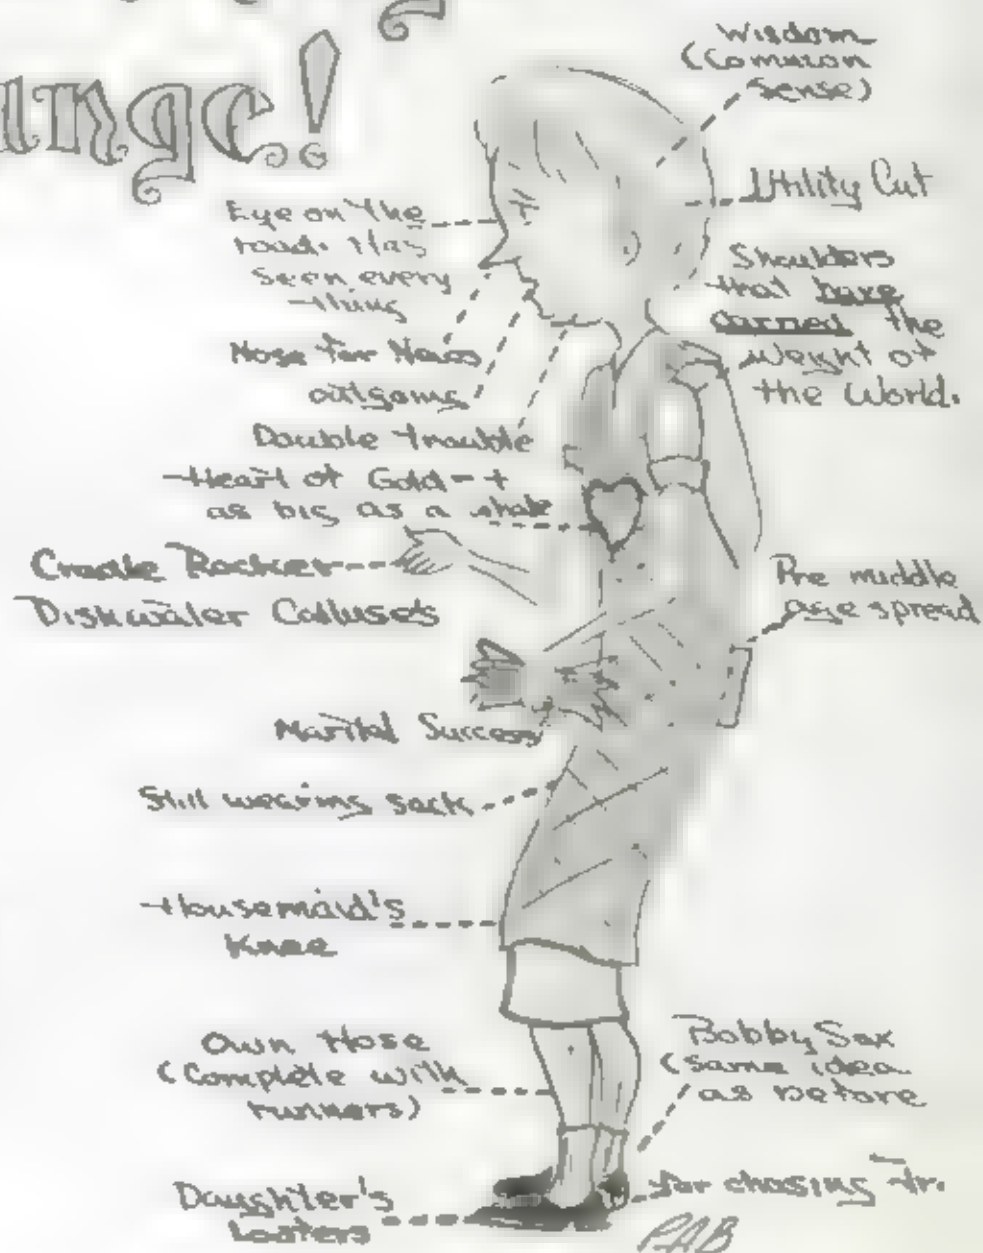 Wisdom
(Common
Sense)
Utility Cut
Eye on the
road. Has
seen every
thing
Shoulders
that have
carried the
weight of
the World.
Nose for News
outgoing
Double trouble
Heart of Gold - +
as big as a whale
Cradle Rocker
Dishwater Calluses
Pre middle
age spread
Marital Success
Still wearing sack
Housemaid's
Knee
Own Hose
(Complete with
runners)
Bobby Sox
(same idea
as before
Daughter's
loafers
for chasing
PAB